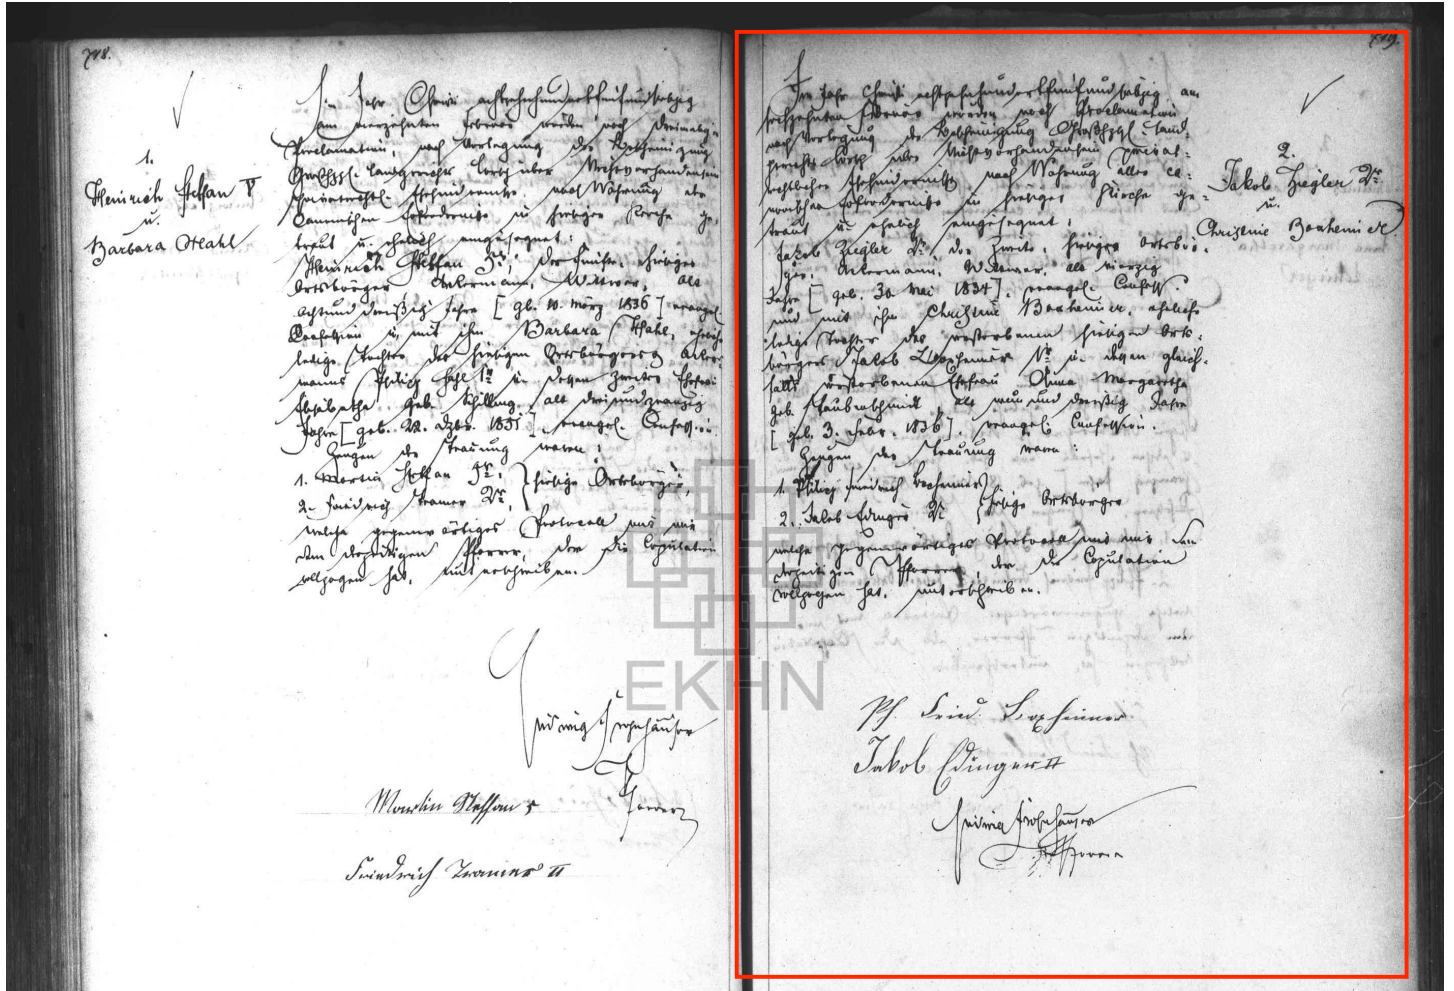 718.
1.
Heinrich Steffan V
u.
Barbara Stahl
Im Jahr Christi achtzehnhundertfünfundsiebzig
am vierzehnten Februar wurden nach dreimaliger
Proclamation, nach Vorlegung der Bescheinigung
Großhzgl. Landgerichts Lorsch über Nichtvorhandensein
privatrechtl. Ehehindernisse nach Wahrung aller
canonischen Erfordernisse in hiesiger Kirche ge-
traut u. ehelich eingesegnet:
Heinrich Steffan 5r, der Fünfte, hiesiger
Ortsbürger, Ackermann, Wittwer, alt
achtunddreißig Jahre [geb. 10. März 1836] evangel.
Confession u. mit ihm Barbara Stahl, eheliche
ledige Tochter des hiesigen Ortsbürgers u. Acker-
manns Philipp Stahl 1r u. dessen zweiter Ehefrau
Elisabetha geb. Schilling, alt dreiundzwanzig
Jahre [geb. 22. Dzbr. 1851], evangel. Confession.
Zeugen der Trauung waren:
1. Martin Steffan 5r,
2. Friedrich Kramer 2r,
hiesige Ortsbürger,
welche gegenwärtiges Protocoll mit mir
dem derzeitigen Pfarrer, der die Copulation
vollzogen hat, unterschreiben.
Ludwig Frohnhäuser
Pfarrer
Martin Steffan 5
Friedrich Kramer II
719.
2.
Jakob Ziegler 2r
u.
Christine Boxheimer
Im Jahr Christi achtzehnhundertfünfundsiebzig am
sechzehnten Februar wurden nach Proclamation
nach Vorlegung der Bescheinigung Großhzgl. Land-
gerichts Lorsch über Nichtvorhandensein privat-
rechtlicher Ehehindernisse nach Wahrung aller ca-
nonischen Erfordernisse in hiesiger Kirche ge-
traut u. ehelich eingesegnet:
Jakob Ziegler 2r, der Zweite, hiesiger Ortsbür-
ger, Ackermann, Wittwer, alt vierzig
Jahre [geb. 30. Mai 1834], evangel. Confess.
und mit ihm Christine Boxheimer, eheliche
ledige Tochter des verstorbenen hiesigen Orts-
bürgers Jakob Boxheimer u. dessen gleich-
falls verstorbenen Ehefrau Anna Margaretha
geb. Staubschmidt, alt neun und dreißig Jahre
[geb. 3. Febr. 1836], evangel. Confession.
Zeugen der Trauung waren:
1. Philipp Friedrich Boxheimer
2. Jakob Edinger 2r
hiesige Ortsbürger
welche gegenwärtiges Protocoll mit mir dem
derzeitigen Pfarrer, der die Copulation
vollzogen hat, unterschreiben.
Ph. Fried. Boxheimer
Jakob Edinger II
Ludwig Frohnhäuser
Pfarrer
EKHN